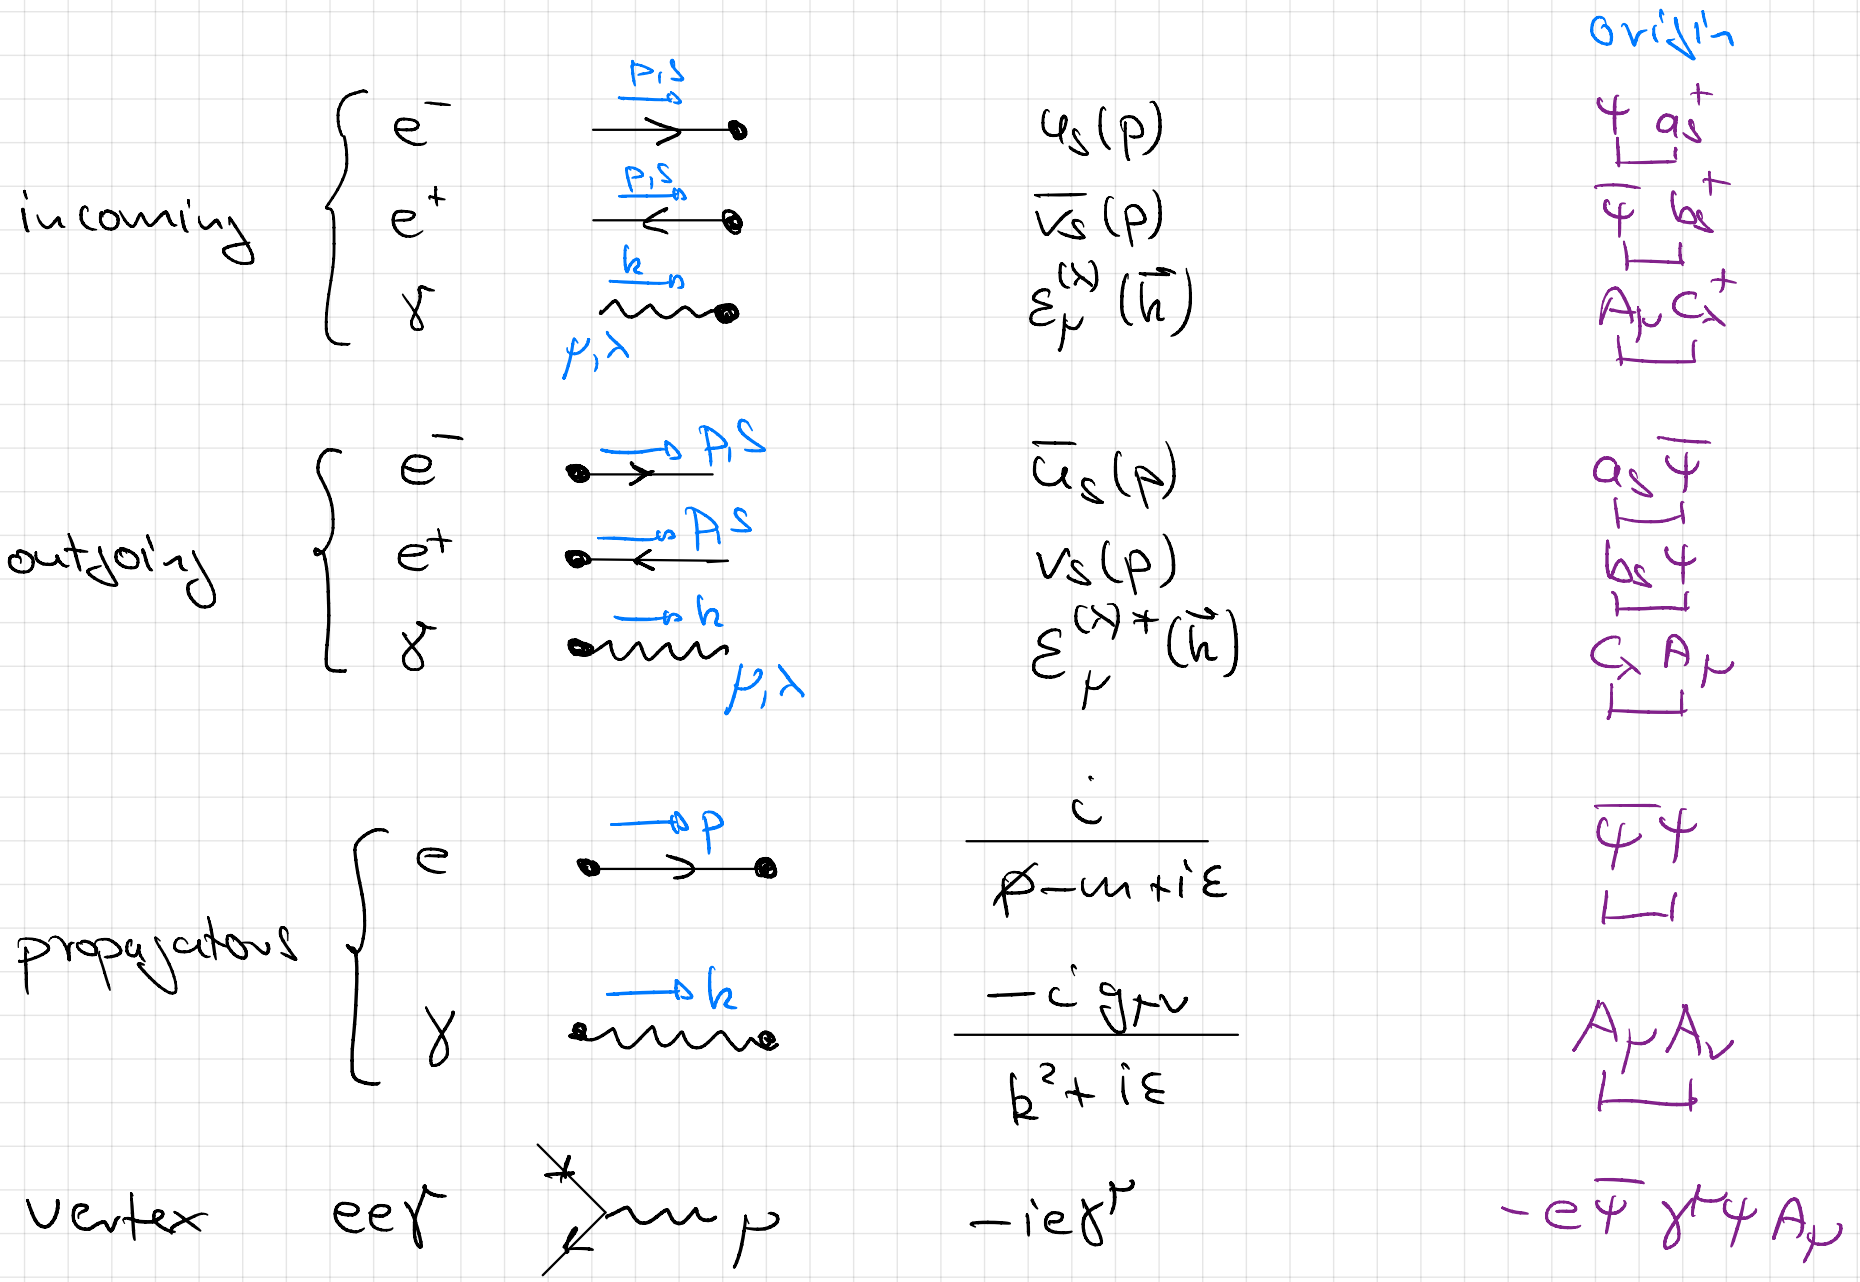 origin
incoming { e⁻ p,s u_s(p) ψ a_s⁺
e⁺ p,s \overline{v_s}(p) \overline{ψ} b_s⁺
γ k μ,λ ε_μ^{(λ)}(\vec{k}) A_μ C_λ⁺
outgoing { e⁻ p,s \overline{u}_s(p) a_s \overline{ψ}
e⁺ p,s v_s(p) b_s ψ
γ k μ,λ ε_μ^{(λ)*}(\vec{k}) C_λ A_μ
propagators { e p \frac{i}{\not{p}-m+iε} \overline{ψ} ψ
γ k \frac{-i g_{μν}}{k²+iε} A_μ A_ν
vertex eeγ μ -ieγ^μ -e\overline{ψ} γ^μ ψ A_μ